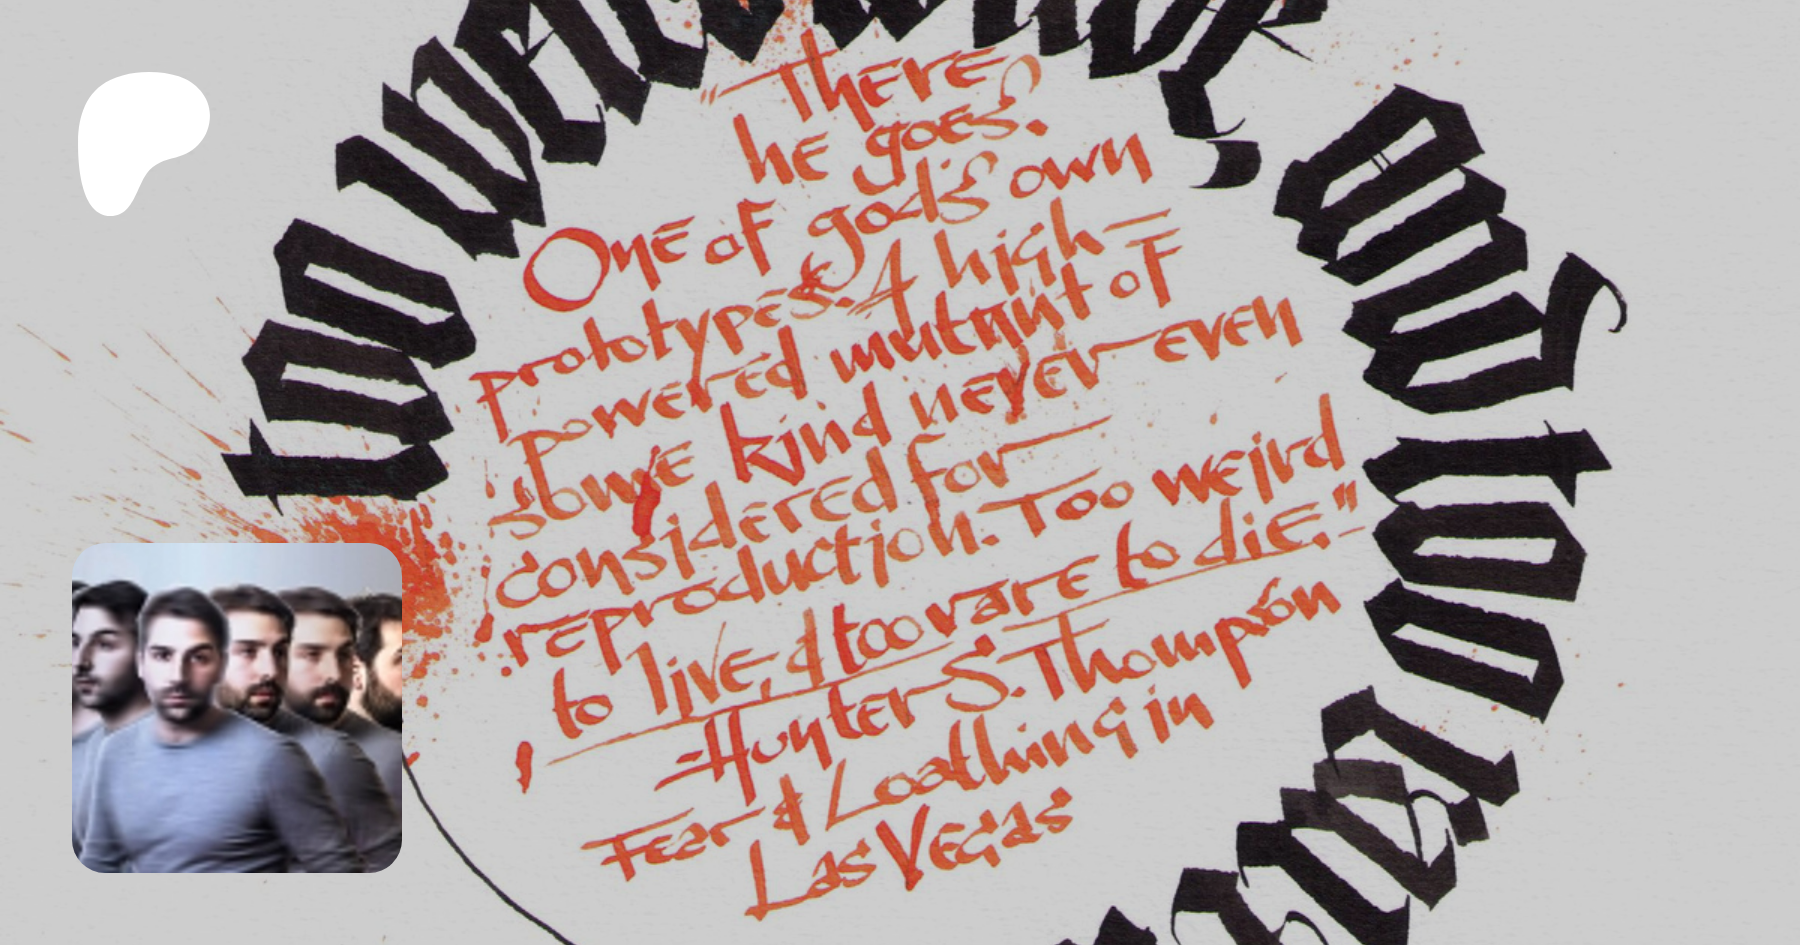 too
and too
"There
he goes.
One of god's own
prototypes. A high
powered mutant of
some kind never even
considered for
reproduction. Too weird
to live, & too rare to die."
-Hunter S. Thompson
Fear & Loathing in
Las Vegas